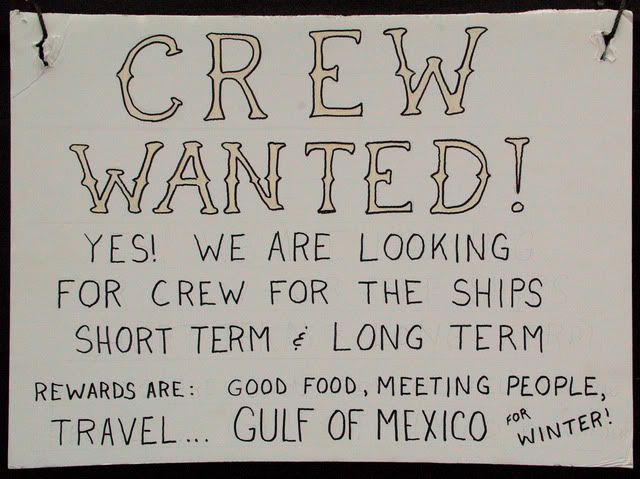 CREW
WANTED!
YES! WE ARE LOOKING
FOR CREW FOR THE SHIPS
SHORT TERM & LONG TERM
REWARDS ARE: GOOD FOOD, MEETING PEOPLE,
TRAVEL... GULF OF MEXICO FOR WINTER!